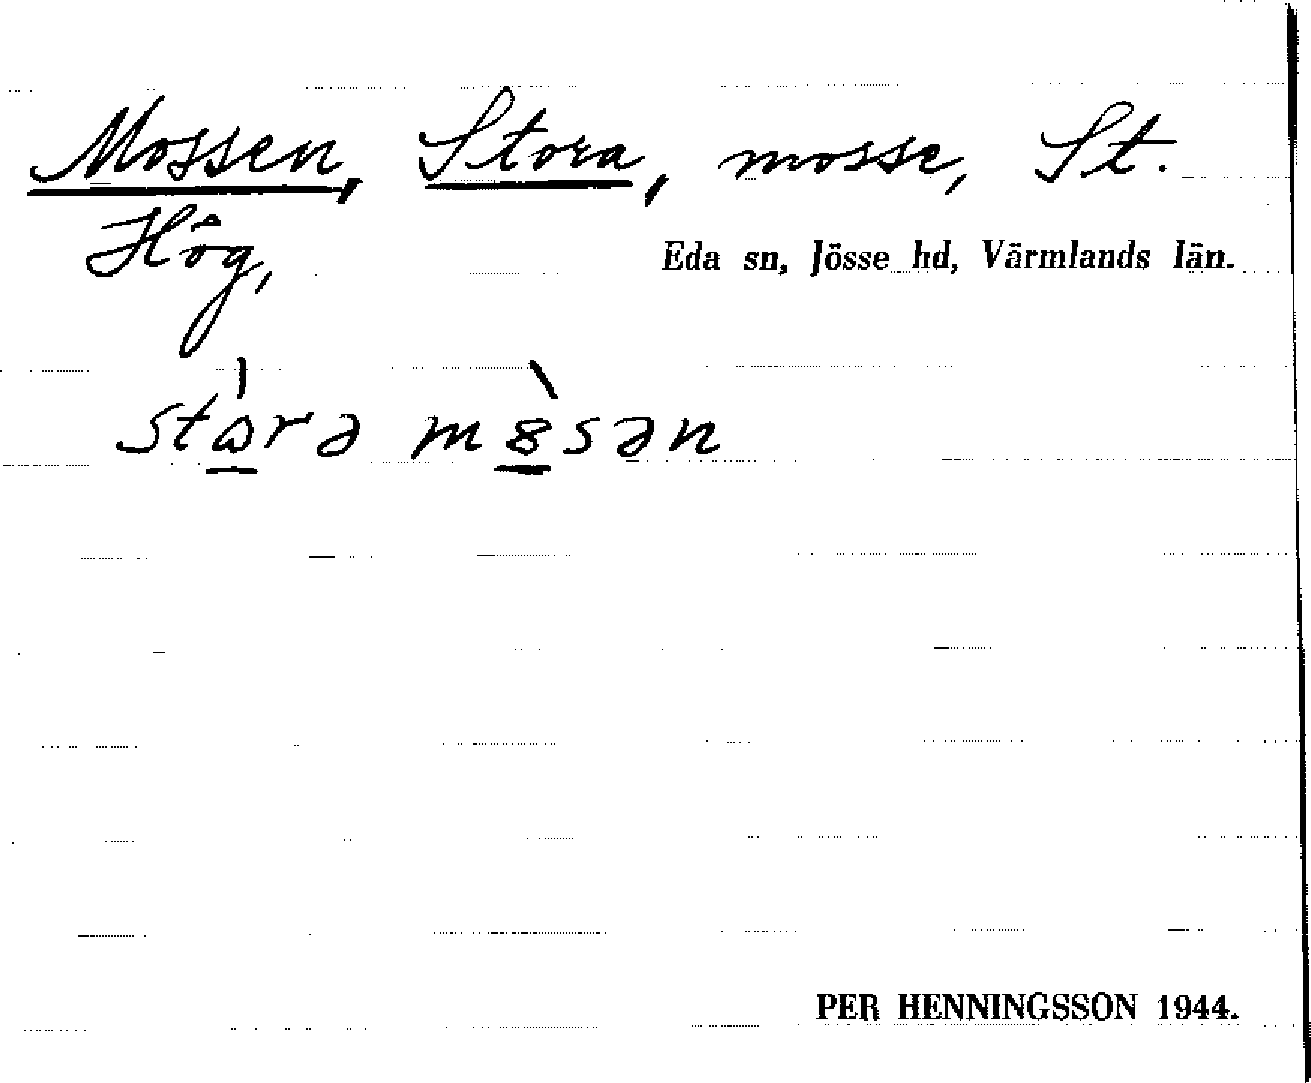 Mossen, Stora, mosse, St.
Hög,
Eda sn, Jösse hd, Värmlands län.
stɷ̀rə m8̀sən
PER HENNINGSSON 1944.